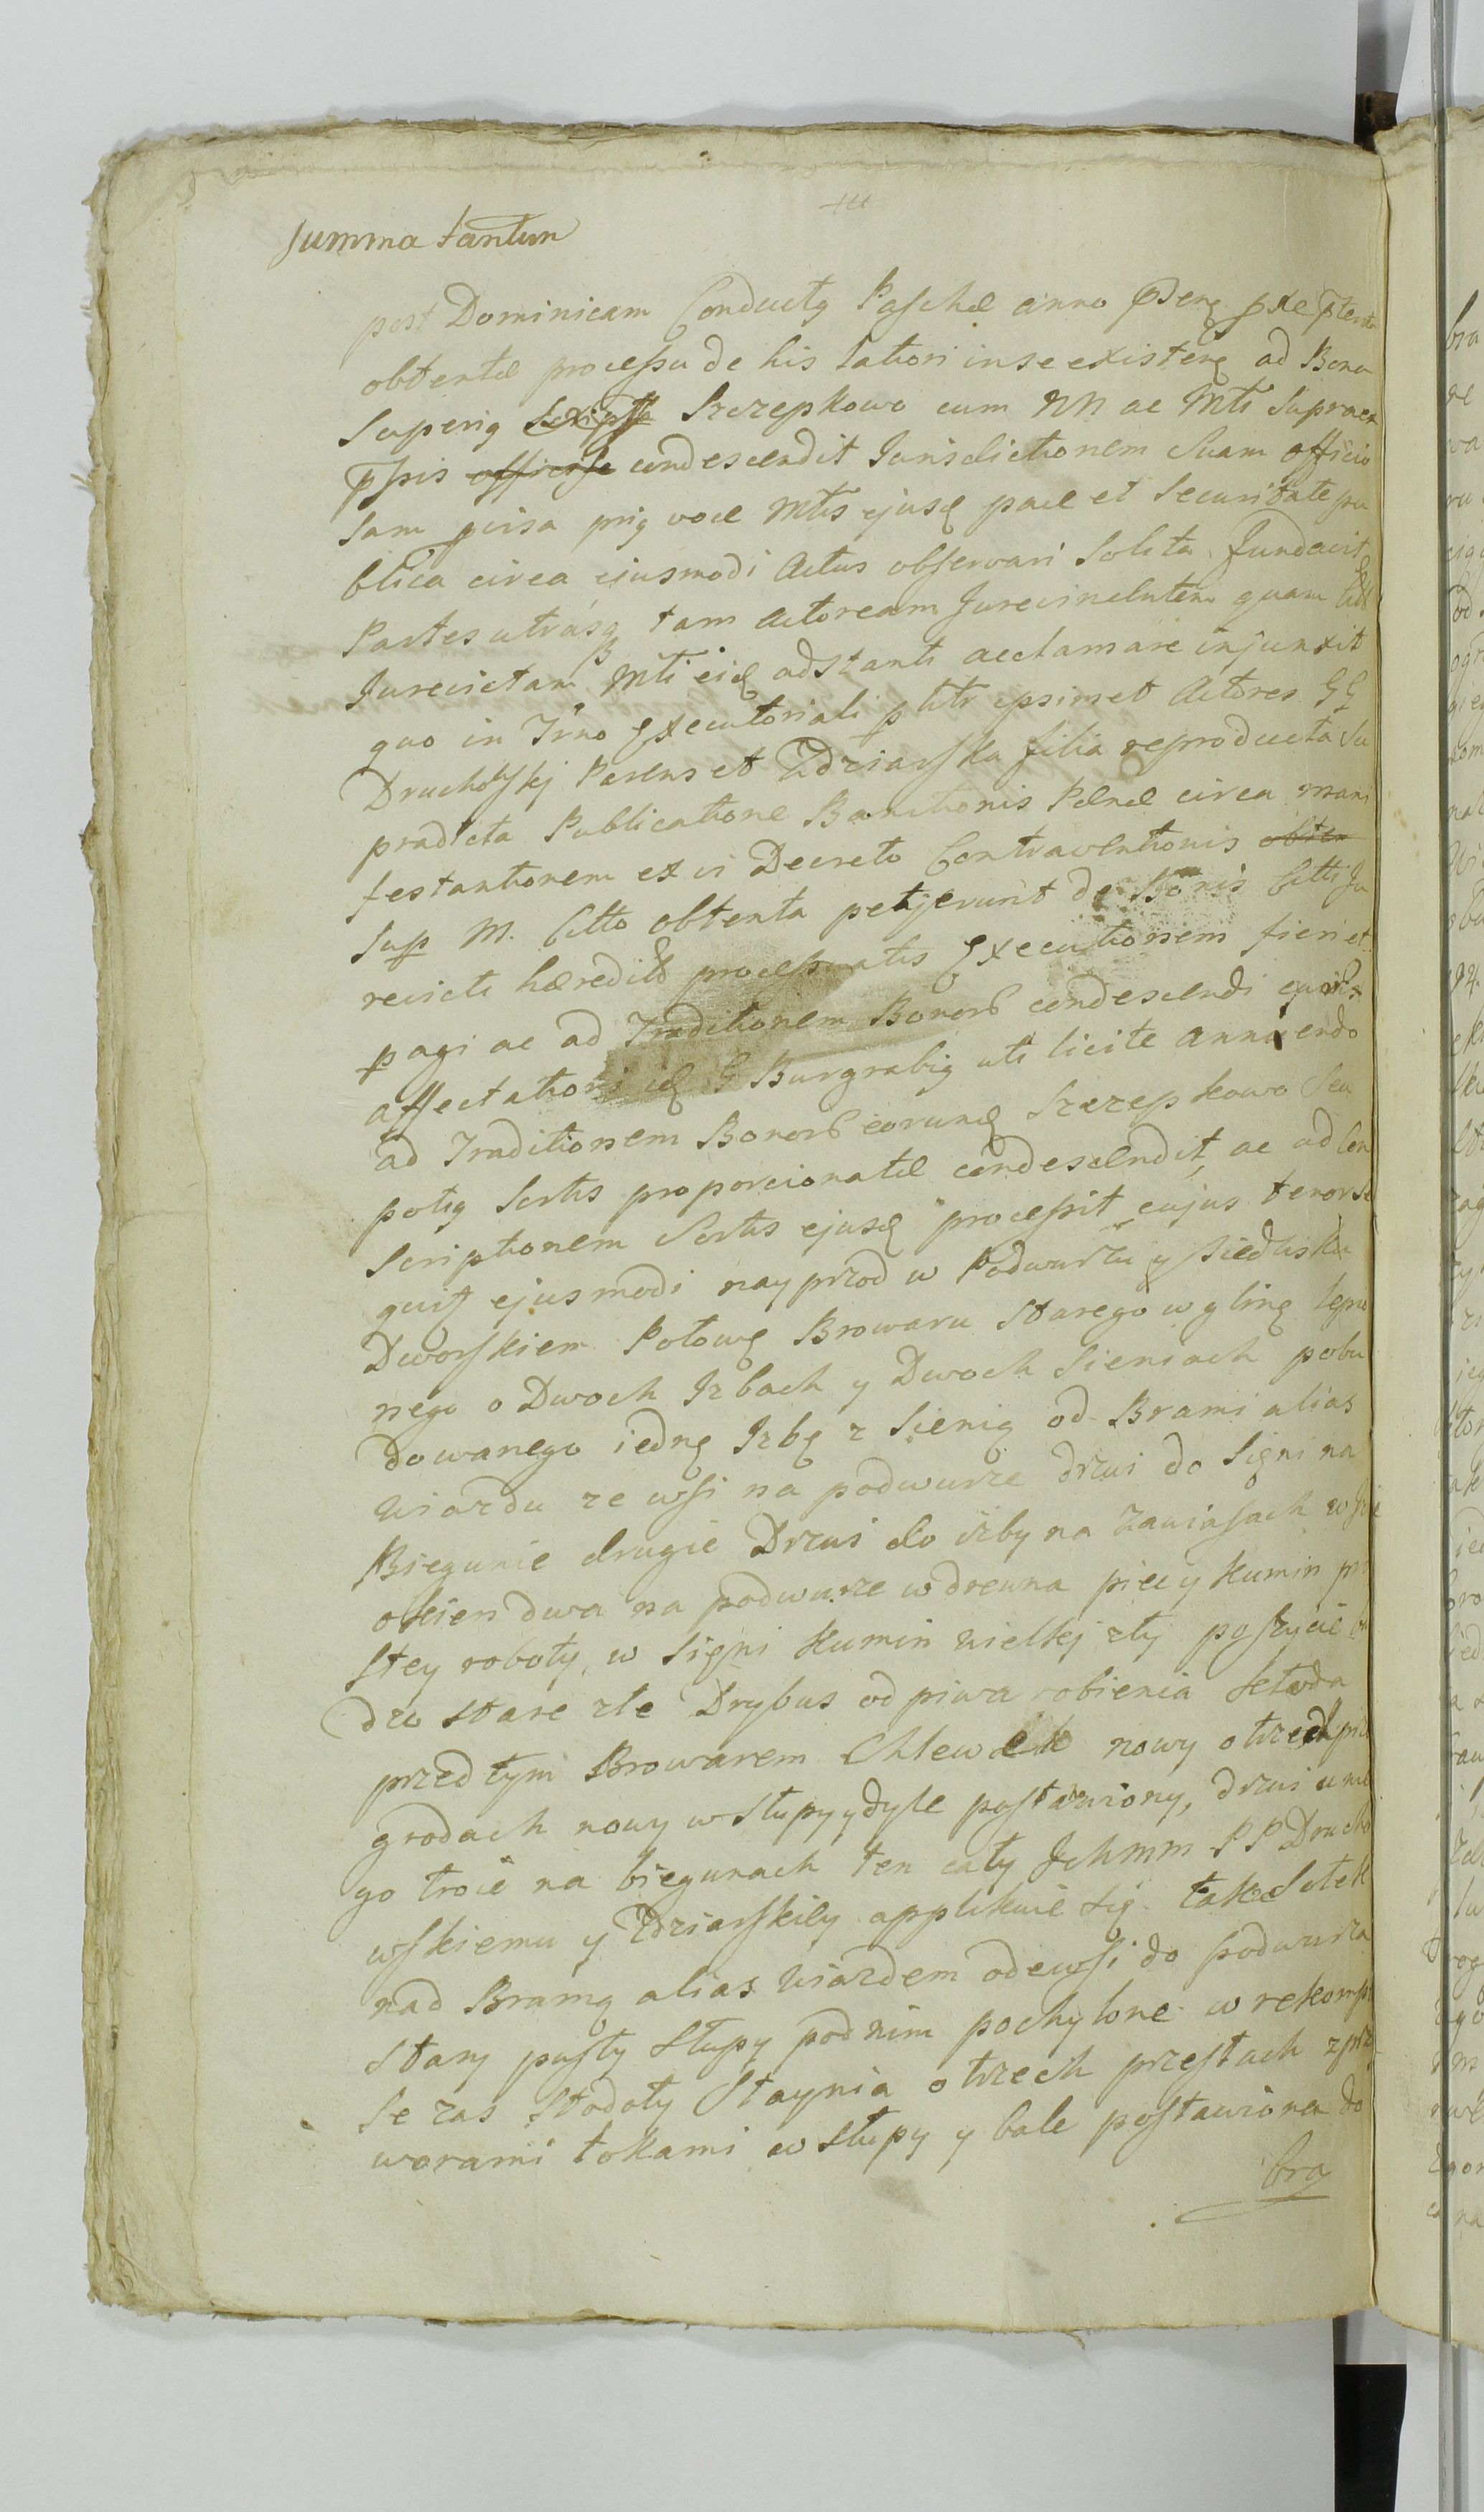 Summa tantum
post Dominicam Conductq Paschæ anno
obtentæ processu de his latiori in se existenq ad Bona
Superiq Scripta Szczepkowo cum NN ac Mti Supraex
pssis officiose condescendit Jurisdictionem Suam officio
sam pvisa priq voce Mtis ejusq pace et Securitate pu
blica circa ejusmodi Actus observari Solita fundavit
Partes utrasq tam Actoream Jurevincentem quam
Jurevictam Mti eiq adstanti acclamare injunxit
quo in Trno Executoriali pltr ipsimet Actores GG
Drucholskj Parens et Zdziarska filia reproducta Su
pradicta Publicatione Bannitionis Pænæ circa mani
festantionem ex vi Decreto Contraventionis obten
Sup M. Citto obtenta petijerunt de Bonis Citti Ju
revicti hæredit processuatis Executionem fieri et
pagi ac ad Traditionem Bonor condescendi quor
affectationi iq G Burgrabiq uti licite annuendo
ad Traditionem Bonor eorunq Szczepkowo Seu
potiq Sortis proporcionatæ condescendit, ac ad Con
scriptionem Sortis ejusq processit cujus tenor se
quit ejusmodi nayprzod w Podwurzu y Siedlisku
Dworskiem Połowę Browaru Starego w glinę lepio
nego o Dwoch Izbach y Dwoch Sieniach pobu
dowanego iednę Izbę z Sienią od Brami alias
Wiazdu ze wsi na podwurze drzwi do Sieni na
Biegunie drugie Drzwi do izby na Zawiasach w Izie
okien dwa na podwurze w drewna piec y kumin pro
stey roboty, w Sieni Kumin wielkj zły poszycie b
dzo stare złe Drybus od piwa robienia kłoda
przed tym Browarem Chlewek nowy o trzech prze
grodach nowy w słupy y dyle postawiony, drzwi u nie
go troie na biegunach ten cały Ichmm PP Drucho
wskiemu y Zdziarskiey applikuie się. także Sutek
nad Bramą alias Wiazdem ode wsi do podwurza
stary pusty Słupy pod nim pochylone. w rekompe
se zas Stodoły Staynia o trzech przęstach z prze
worami tokami w Słupy y bale postawiona do
brą